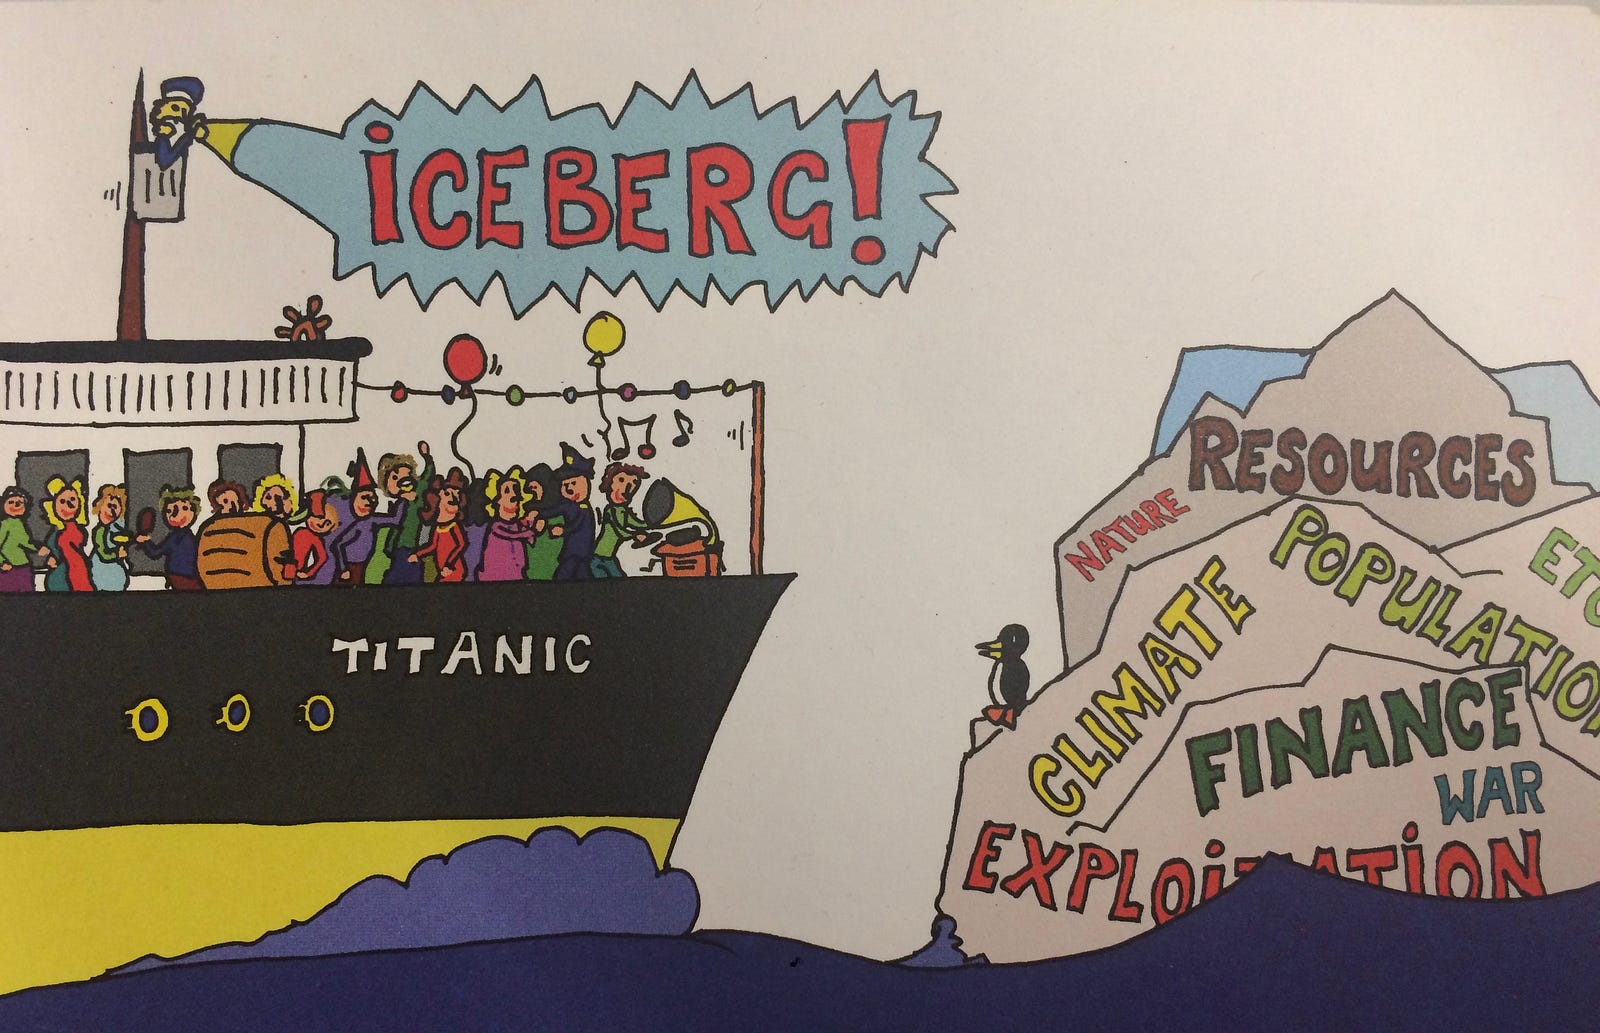 iCEBERG!
TITANIC
RESOURCES
NATURE
POPULATION
ETC
CLIMATE
FINANCE
WAR
EXPLOiTATiON